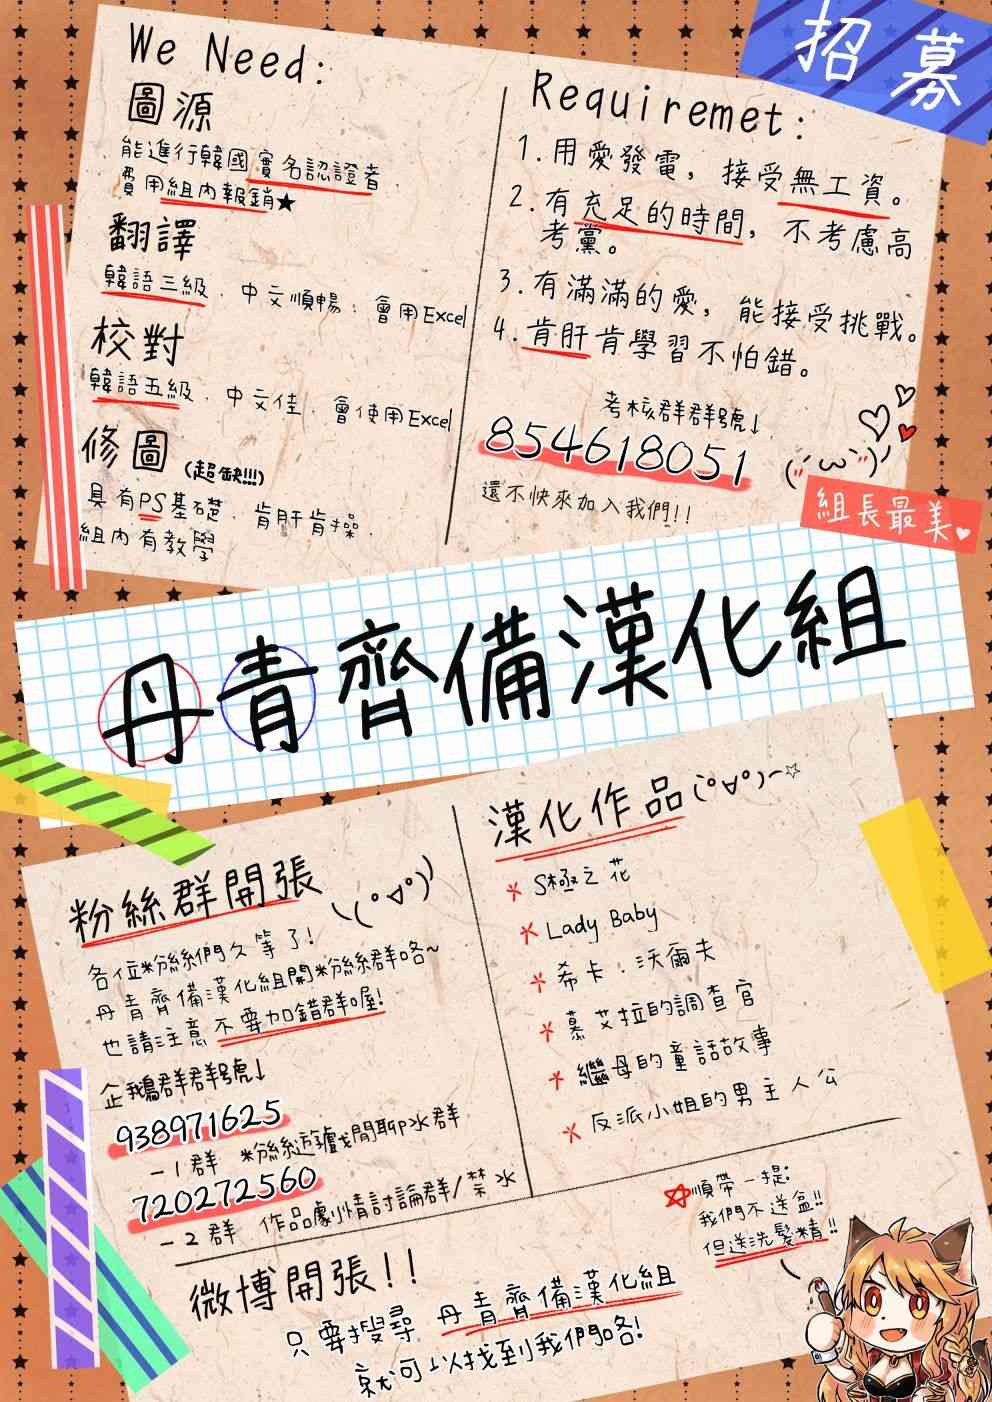 招募
We Need:
圖源
能進行韓國實名認證者.
費用組內報銷★
翻譯
韓語三級、中文順暢、會用Excel
校對
韓語五級、中文佳、會使用Excel
修圖(超缺!!!)
具有PS基礎、肯肝肯操.
組內有教學
Requiremet:
1.用愛發電,接受無工資。
2.有充足的時間,不考慮高
考黨。
3.有滿滿的愛,能接受挑戰。
4.肯肝肯學習不怕錯。
考核群群號↓
854618051
還不快來加入我們!!
組長最美♥
丹青齊備漢化組
粉絲群開張
各位粉絲們久等了!
丹青齊備漢化組開粉絲群咯~
也請注意不要加錯群喔!
企鵝群群號↓
938971625
-1群 粉絲追讀戈閒聊水群
720272560
-2群 作品劇情討論群/禁水
漢化作品(°∀°)~☆
* S極之花
* Lady Baby
* 希卡·沃爾夫
* 慕艾拉的調查官
* 繼母的童話故事
* 反派小姐的男主人公
☆順帶一提:
我們不送盒!!
但送洗髮精!!
微博開張!!
只要搜尋 丹青齊備漢化組
就可以找到我們咯!